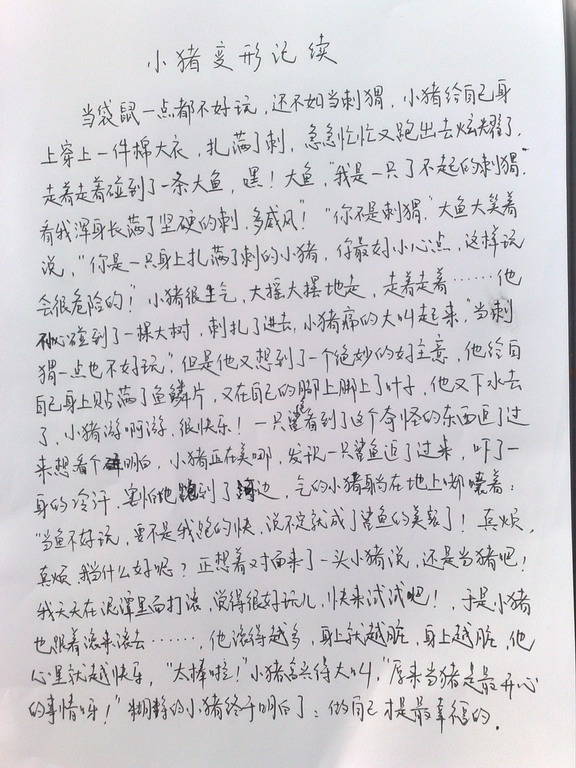 小猪变形记续
当袋鼠一点都不好玩，还不如当刺猬，小猪给自己身
上穿上一件棉大衣，扎满了刺，急急忙忙又跑出去炫耀了，
走着走着碰到了一条大鱼，嘿！大鱼，“我是一只了不起的刺猬”，
看我浑身长满了坚硬的刺，多威风”！“你不是刺猬，”大鱼大笑着
说，“你是一只身上扎满了刺的小猪，你最好小心点，这样说
会很危险的！”小猪很生气，大摇大摆地走，走着走着……他
不小心碰到了一棵大树，刺扎了进去，小猪痛的大叫起来，“当刺
猬一点也不好玩”，但是他又想到了一个绝妙的好主意，他给自
己身上贴满了鱼鳞片，又在自己的脚上脚上了叶子，他又下水去
了，小猪游啊游，很快乐！一只鲨鱼看到了这个奇怪的东西追了过
来想看个明白，小猪正在美哪，发现一只鲨鱼追了过来，吓了一
身的冷汗，害怕地跑到了河边，气的小猪躺在地上嘟囔着：
“当鱼不好玩，要不是我跑的快，说不定就成了鲨鱼的美餐了！真烦，
真烦 我当什么好呢？正想着对面来了一头小猪说，还是当猪吧！
我天天在泥潭里面打滚，觉得很好玩儿，快来试试吧！，于是小猪
也跟着滚来滚去………，他滚得越多，身上就越脏，身上越脏，他
心里就越快乐，“太棒啦！”小猪高兴得大叫，“原来当猪是最开心
的事情呀！”粉粉的小猪终于明白了：做自己才是最幸福的．